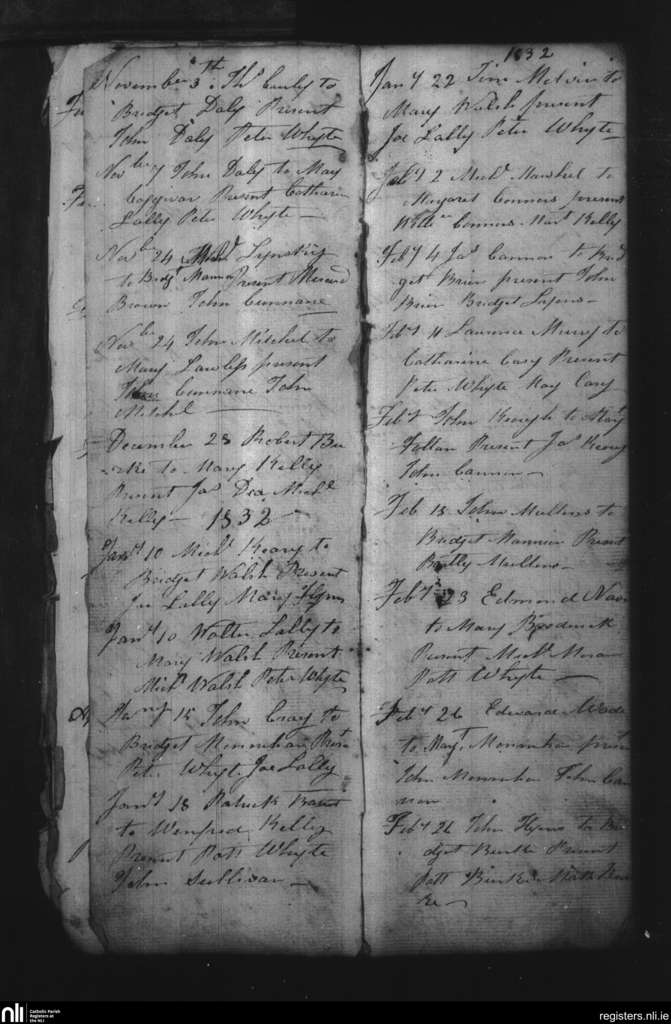 November 3th Ths Curly to
Bridget Daly Present
John Daly Peter Whyte
Novber 7 John Daly to May
Present Catharin
Lally Peter Whyte
Novbr 24 Lynskey
to Bridgt Present
Brown John Cunnane
Novbr 24 John Mitchel to
Mary Lawless present
Cunnane John
Mitchel
December 28 Robert Bu
rke to Mary Kelly
Present Jas Dea Michl
Kelly 1832
Jany 10 Michl Keary to
Bridget Walsh Present
Joe Lally Mary Hynes
Jany 10 Walter Lally to
Mary Walsh Present
Michl Walsh Peter Whyte
Jany 15 John Cray to
Bridget Monnahan Present
Peter Whyte Joe Lally
Jany 18 Patrick
to Winifred Kelly
Present Patt Whyte
John Sullivan
1832
Jany 22 Tim Melvin to
Mary Walsh present
Joe Lally Peter Whyte
Feby 2 Michl to
Margaret Connors present
Connors Kelly
Feby 4 Jas Cannon to Brid
get Brien present John
Brien Bridget
Feby 11 Laurence Murry to
Catharine Casy Present
Peter Whyte May Casy
Feby John Keough to Mary
Fallon Present Jas Keoug
John Cannon
Feb 18 John Mullins to
Bridget Mannion Present
Mullins
Feby 23 Edmond
to Mary Broderick
Present Michl Moran
Patt Whyte
Feby 26 Edward Wade
to Mary Monnahan present
John Monnahan John Can
non
Feby 26 John Hynes to Bri
dget Burke Present
Patt Burke
ke
nli
Catholic Parish
Registers at
the NLI
registers.nli.ie